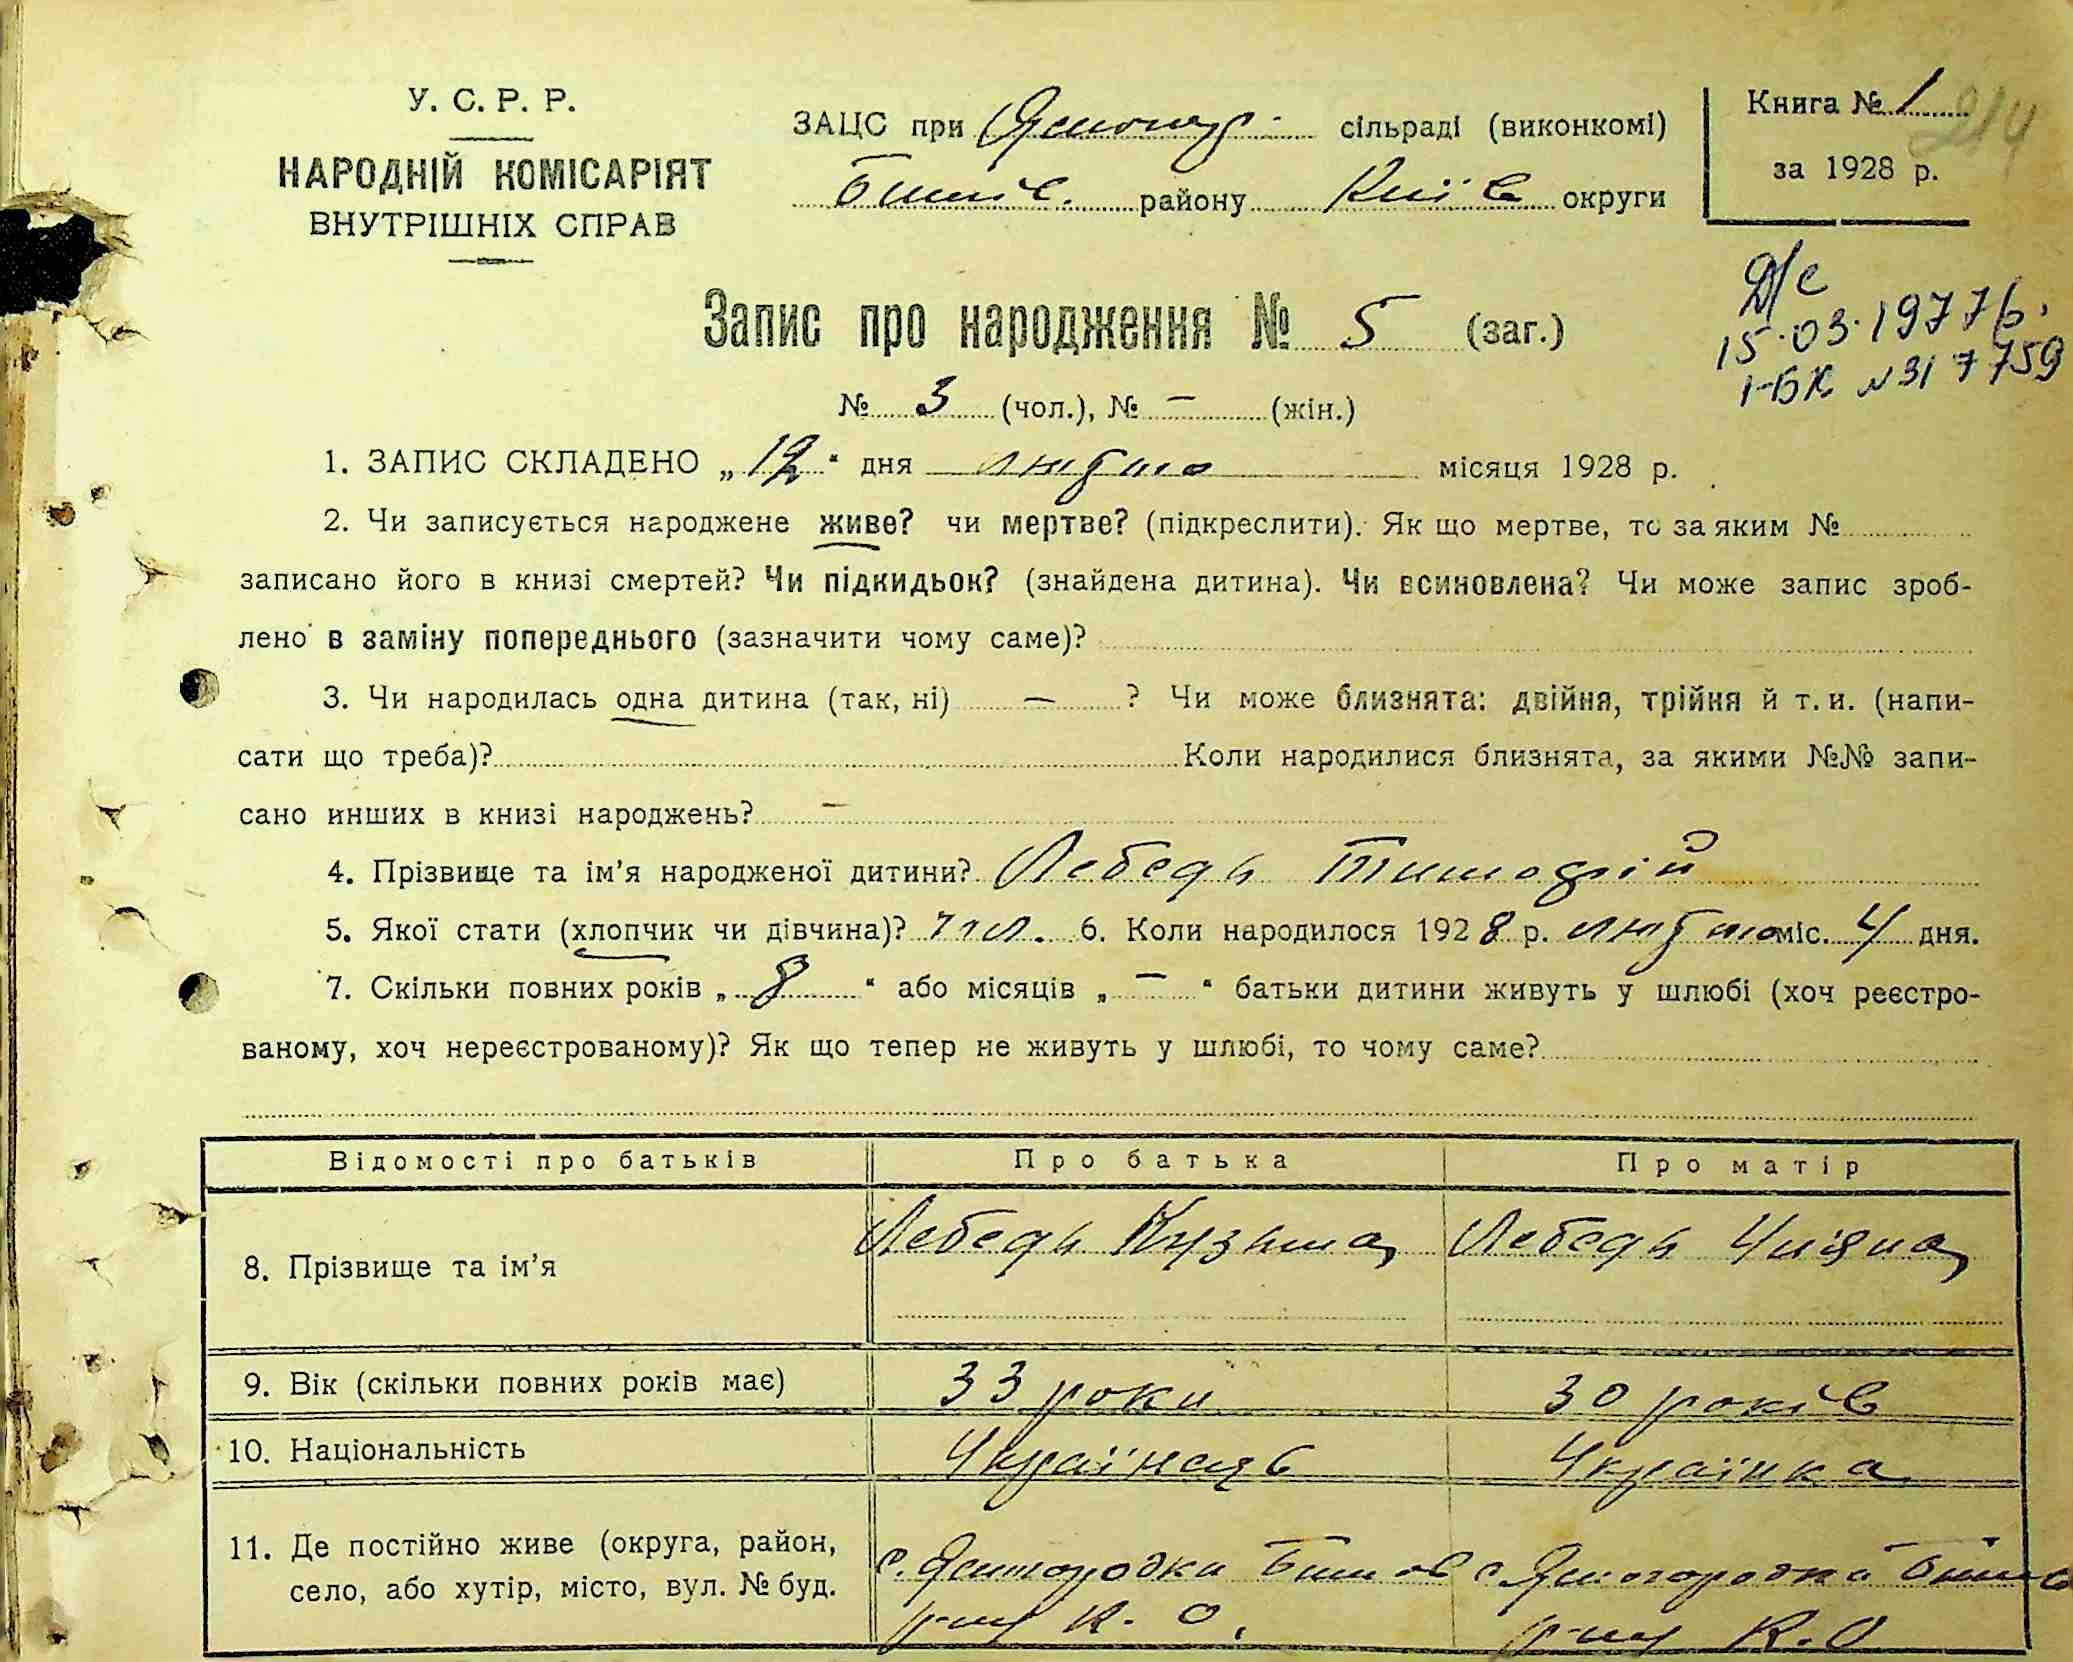 У. С. Р. Р.
НАРОДНІЙ КОМІСАРІЯТ
ВНУТРІШНІХ СПРАВ
ЗАЦС при Ясногор. сільраді (виконкомі)
Бишів. району Київ округи
Книга № 1
214
за 1928 р.
Д/с
15.03.1977 р.
I-БК № 317759
Запис про народження № 5 (заг.)
№ 3 (чол.), № – (жін.)
1. ЗАПИС СКЛАДЕНО „12“ дня лютого місяця 1928 р.
2. Чи записується народжене живе? чи мертве? (підкреслити). Як що мертве, то за яким №
записано його в книзі смертей? Чи підкидьок? (знайдена дитина). Чи всиновлена? Чи може запис зроб-
лено в заміну попереднього (зазначити чому саме)?
3. Чи народилась одна дитина (так, ні) – ? Чи може близнята: двійня, трійня й т. и. (напи-
сати що треба)? Коли народилися близнята, за якими №№ запи-
сано инших в книзі народжень? –
4. Прізвище та ім’я народженої дитини? Лебедь Тимофій
5. Якої стати (хлопчик чи дівчина)? чол. 6. Коли народилося 1928 р. лютого міс. 4 дня.
7. Скільки повних років „8“ або місяців „–“ батьки дитини живуть у шлюбі (хоч реєстро-
ваному, хоч нереєстрованому)? Як що тепер не живуть у шлюбі, то чому саме?
Відомості про батьків Про батька Про матір
8. Прізвище та ім’я Лебедь Кузьма Лебедь
9. Вік (скільки повних років має) 33 роки 30 років
10. Національність Українець Українка
11. Де постійно живе (округа, район,
село, або хутір, місто, вул. № буд.
с. Ясногородка Бишов
р-ну К. О.
с. Ясногородка Бишов
р-ну К. О